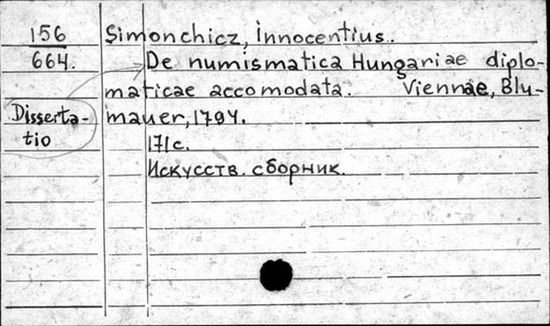 156
664.
Disserta-
tio
Simonchicz, Innocentius.
De numismatica Hungariae diplo-
maticae accomodata. Viennae, Blu-
mauer, 1794.
171 с.
Искусств. сборник.